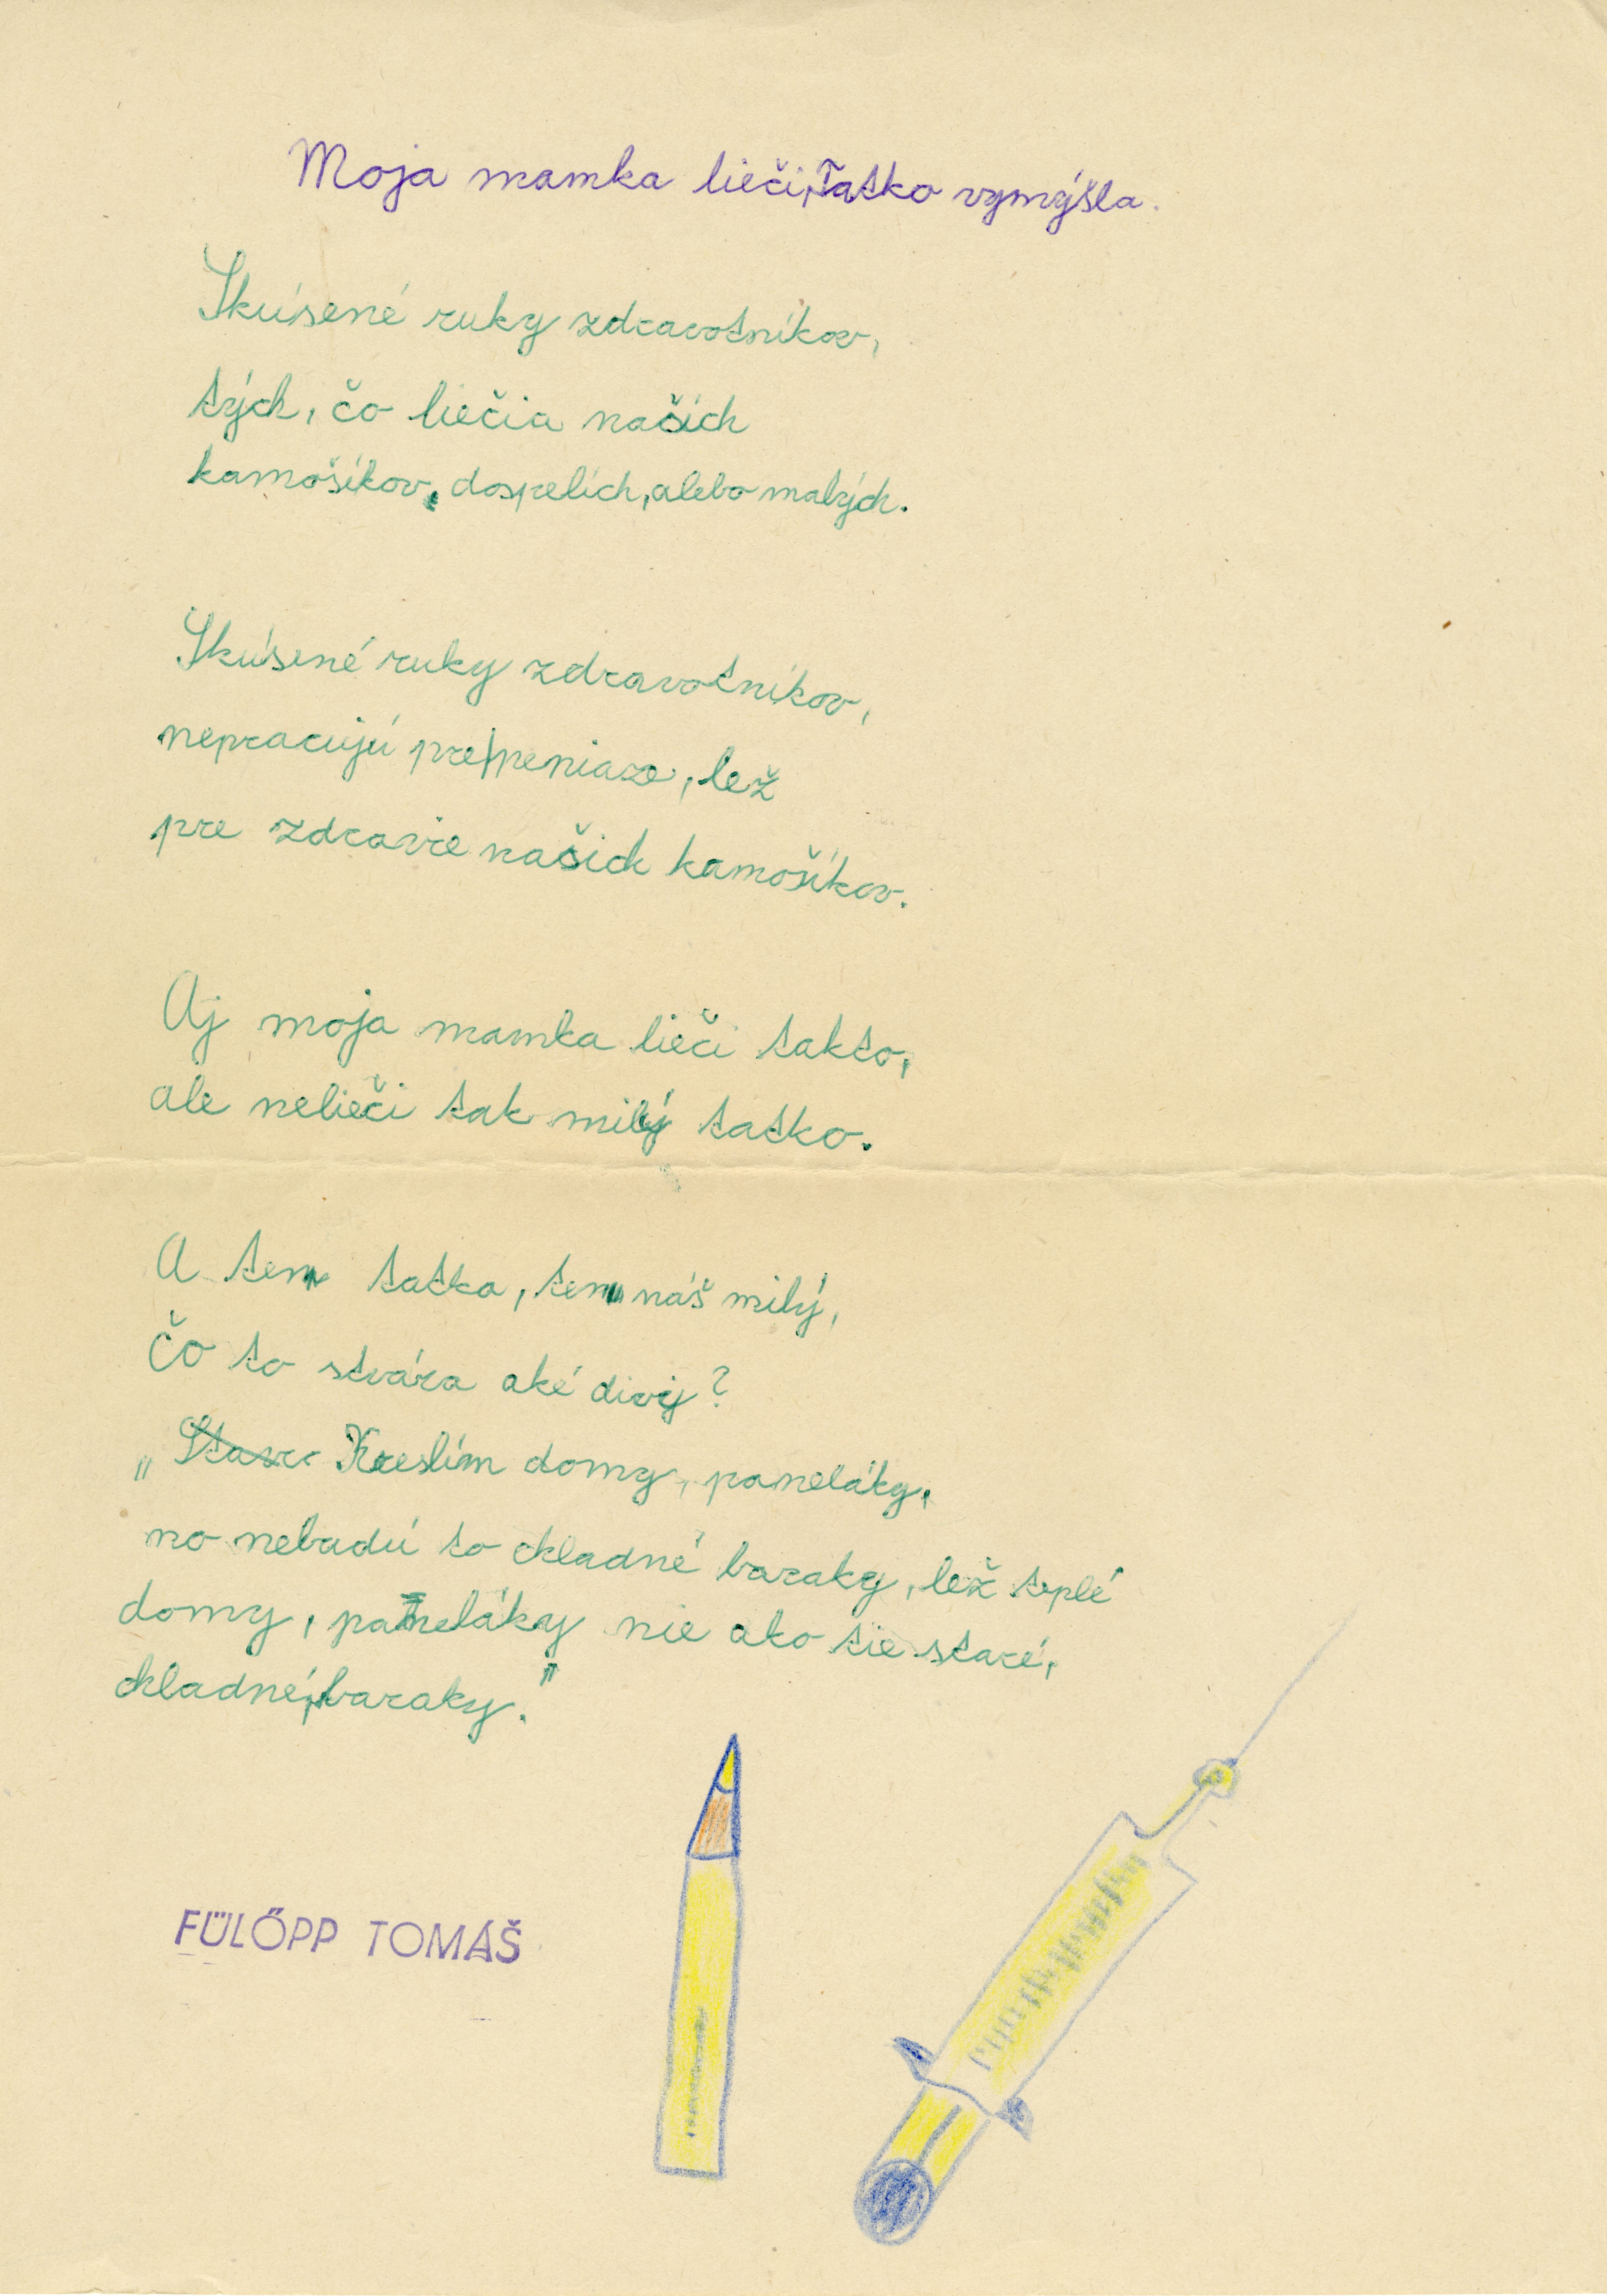 Moja mamka lieči, Tatko vymýšla.
Skúsené ruky zdravotníkov,
tých, čo liečia našich
kamošíkov, dospelích, alebo malých.
Skúsené ruky zdravotníkov,
nepracujú pre peniaze, lež
pre zdravie našich kamošíkov.
Aj moja mamka lieči takto,
ale nelieči tak milý tatko.
A ten tatka, ten náš milý,
Čo to stvára aké divy?
„Stavc Kreslím domy, paneláky,
no nebudú to chladné baraky, lež teplé
domy, paneláky nie ako tie staré,
chladné, baraky."
FÜLŐPP TOMÁŠ